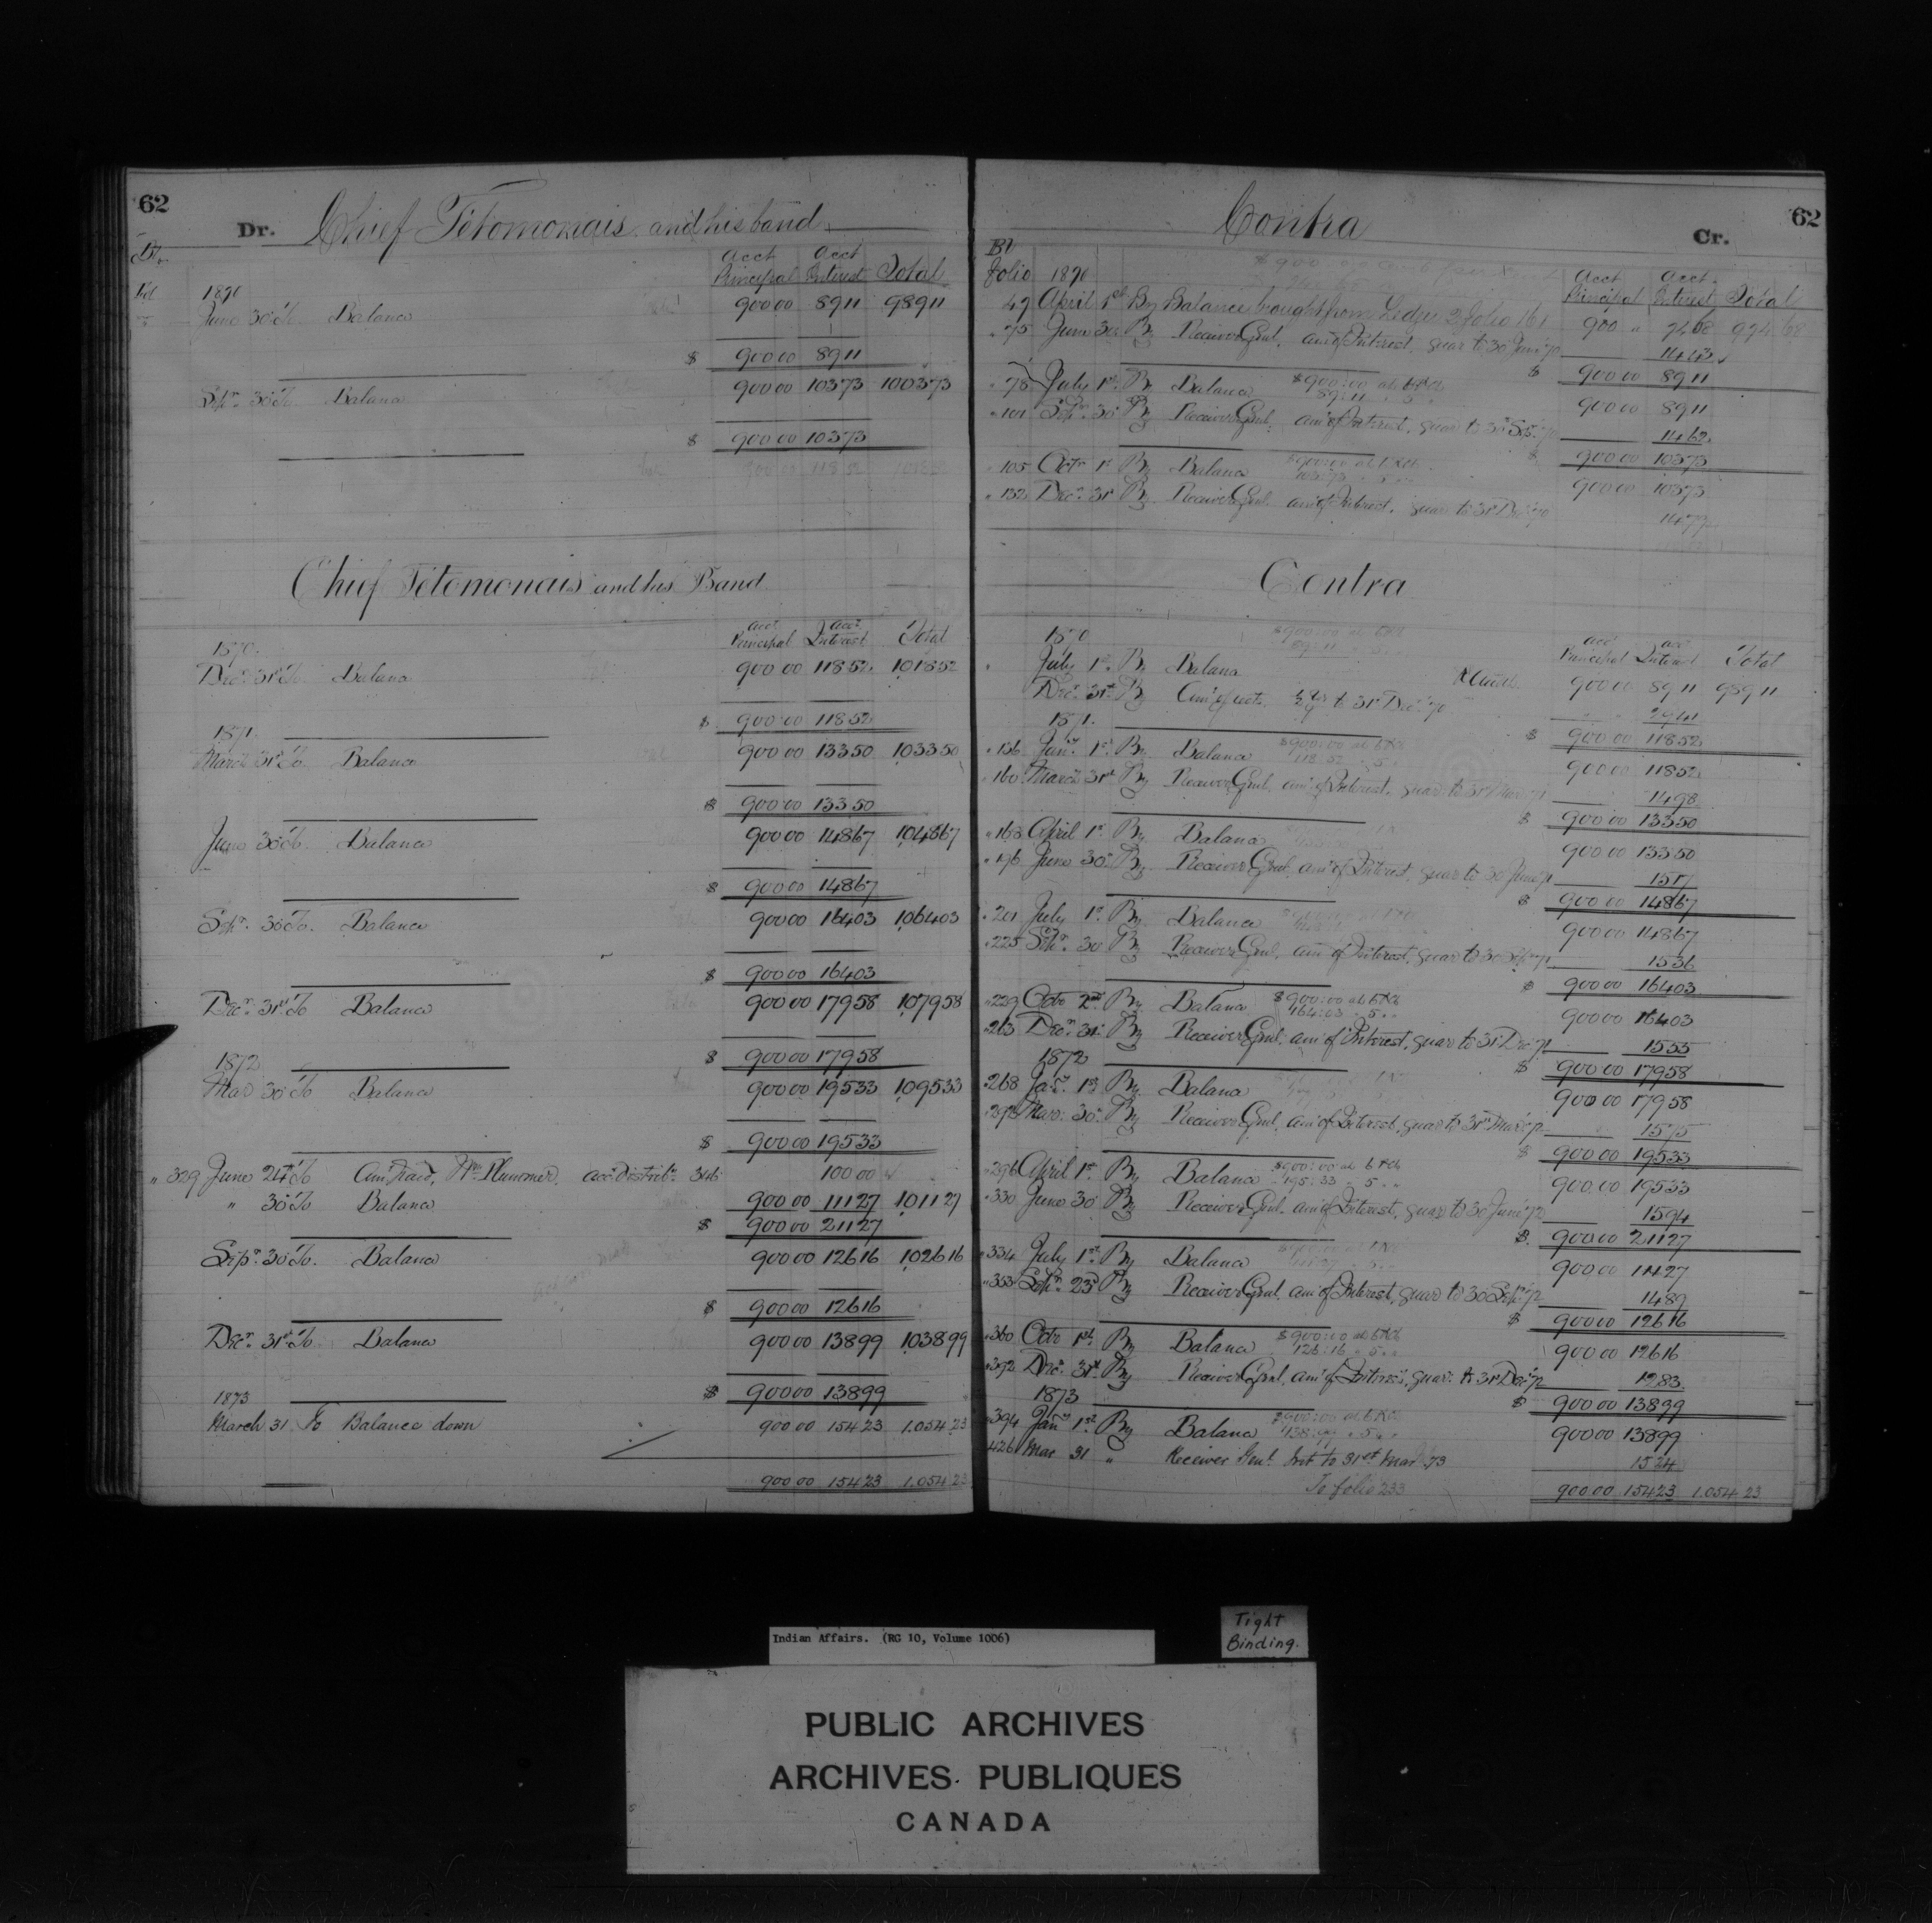 62
Dr. Chief Tetomonais and his band
Acct Principal Acct Interest Total
1870
June 30 To Balance 900 00 89 11 989 11
$ 900 00 89 11
Sepr. 30 To Balance 900 00 103 73 1003 73
$ 900 00 103 73
900 00 118 52
Chief Tetomonais and his Band
Acct Principal Acct Interest Total
1870
Decr. 31st To Balance 900 00 118 52 1,018 52
$ 900 00 118 52
1871
March 31st To Balance 900 00 133 50 1,033 50
$ 900 00 133 50
June 30 To Balance 900 00 148 67 1,048 67
$ 900 00 148 67
Sepr. 30 To Balance 900 00 164 03 1,064 03
$ 900 00 164 03
Decr. 31st To Balance 900 00 179 58 1,079 58
$ 900 00 179 58
1872
Mar 30 To Balance 900 00 195 33 1,095 33
$ 900 00 195 33
" 329 June 24th To Amt. Paid, Wm. Plummer, acc. distribn. 346 100 00
" 30 To Balance 900 00 111 27 1,011 27
$ 900 00 211 27
Sepr. 30 To Balance 900 00 126 16 1,026 16
$ 900 00 126 16
Decr. 31st To Balance 900 00 138 99 1,038 99
$ 900 00 138 99
1873
March 31 To Balance down 900 00 154 23 1.054 23
900 00 154 23 1.054 23
Contra Cr. 62
folio 1870
Acct Principal Acct. Interest Total
49 April 1st By Balance brought from Ledger 2 folio 161 900 " 74 68 974 68
" 75 June 30 By Receiver Genl. amt of Interest, quar to 30 June 70 14 43
$ 900 00 89 11
" 78 July 1st By Balance $900:00 at 6 89:11 " 5 " 900 00 89 11
" 101 Sepr. 30 By Receiver Genl. amt of Interest, quar to 30 Sep. 70 14 62
$ 900 00 103 73
" 105 Octr 1st By Balance $900:00 at 6 103:73 " 5 " 900 00 103 73
" 132 Decr. 31st By Receiver Genl. amt of Interest, quar to 31st Dec. 70 14 79
Contra
1870
acc Principal acc Interest Total
July 1st By Balance 900 00 89 11 989 11
Decr. 31st By Amt of to 31st Decr. 70 29 41
1871
$ 900 00 118 52
" 136 Jany. 1st By Balance $900:00 at 6 118:52 " 5 " 900 00 118 52
" 160 March 31st By Receiver Genl. amt of Interest, quar to 31st Mar 71 14 98
$ 900 00 133 50
" 163 April 1st By Balance 900 00 133 50
" 196 June 30 By Receiver Genl. amt of Interest, quar to 30 June 71 15 17
$ 900 00 148 67
" 201 July 1st By Balance 900 00 148 67
" 225 Sepr. 30 By Receiver Genl. amt of Interest, quar to 30 Sepr 71 15 36
$ 900 00 164 03
" 229 Octo 2nd By Balance $900:00 at 6 164:03 " 5 " 900 00 164 03
" 263 Decr. 31st By Receiver Genl. amt of Interest, quar to 31st Dec 71 15 55
1872
$ 900 00 179 58
" 268 Jany. 1st By Balance 900 00 179 58
Mar. 30 By Receiver Genl. amt of Interest, quar to 31st Mar 72 15 75
$ 900 00 195 33
" 296 April 1st By Balance $900:00 at 6 195:33 " 5 " 900 00 195 33
" 330 June 30 By Receiver Genl. amt of Interest, quar to 30 June 72 15 94
$ 900 00 211 27
" 334 July 1st By Balance 900 00 111 27
" 353 Sepr. 23d By Receiver Genl. amt of Interest, quar to 30 Sepr 72 14 89
$ 900 00 126 16
" 360 Octo 1st By Balance $900:00 at 6 126:16 " 5 " 900 00 126 16
" 392 Decr. 31st By Receiver Genl. amt of Interest, quar. to 31st Dec 72 12 83
1873
$ 900 00 138 99
" 394 Jany 1st By Balance $900:00 at 6 138:99 " 5 " 900 00 138 99
426 Mar 31 " Receiver Genl. Int to 31st Mar 73 15 24
To folio 233 900 00 154 23 1.054 23
Indian Affairs. (RG 10, Volume 1006)
Tight
Binding.
PUBLIC ARCHIVES
ARCHIVES PUBLIQUES
CANADA